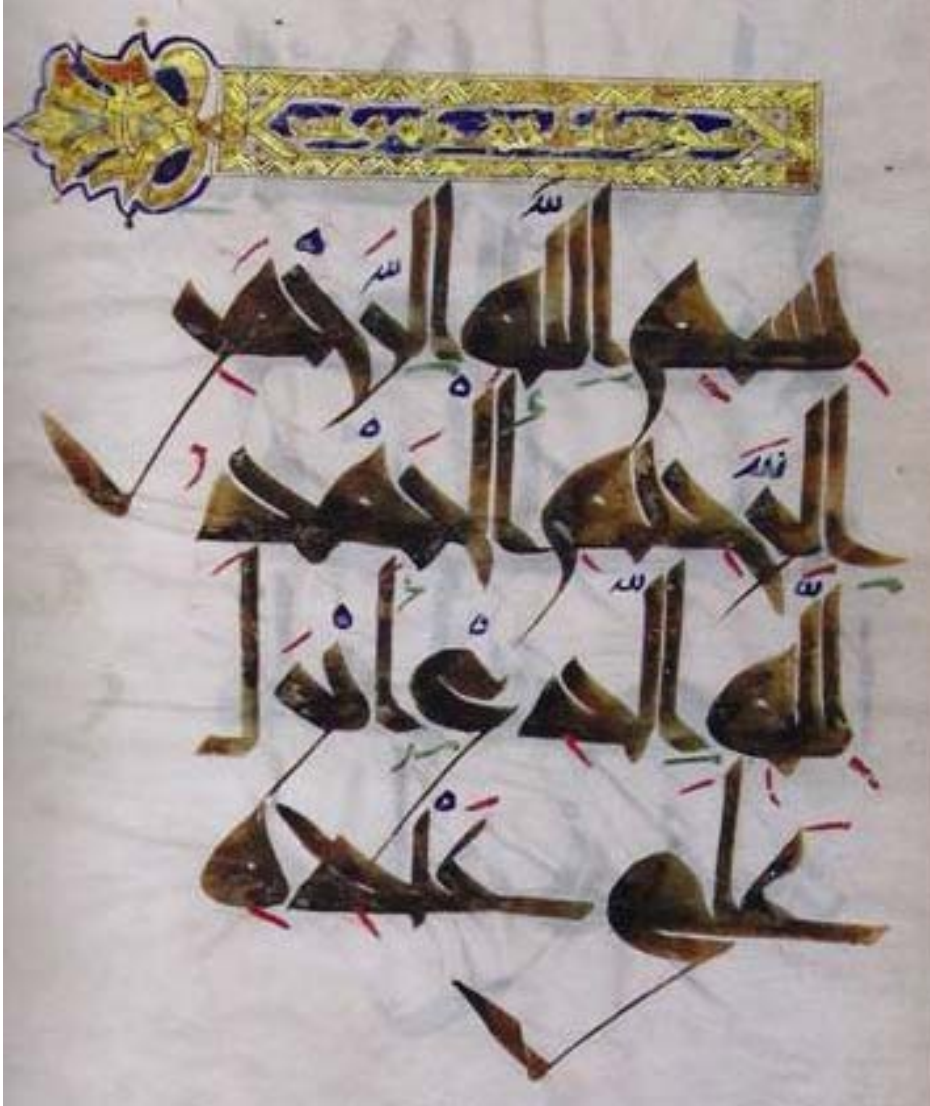 بسم الله الرحمن
الرحيم الحمد
لله الذى انزل
على عبده